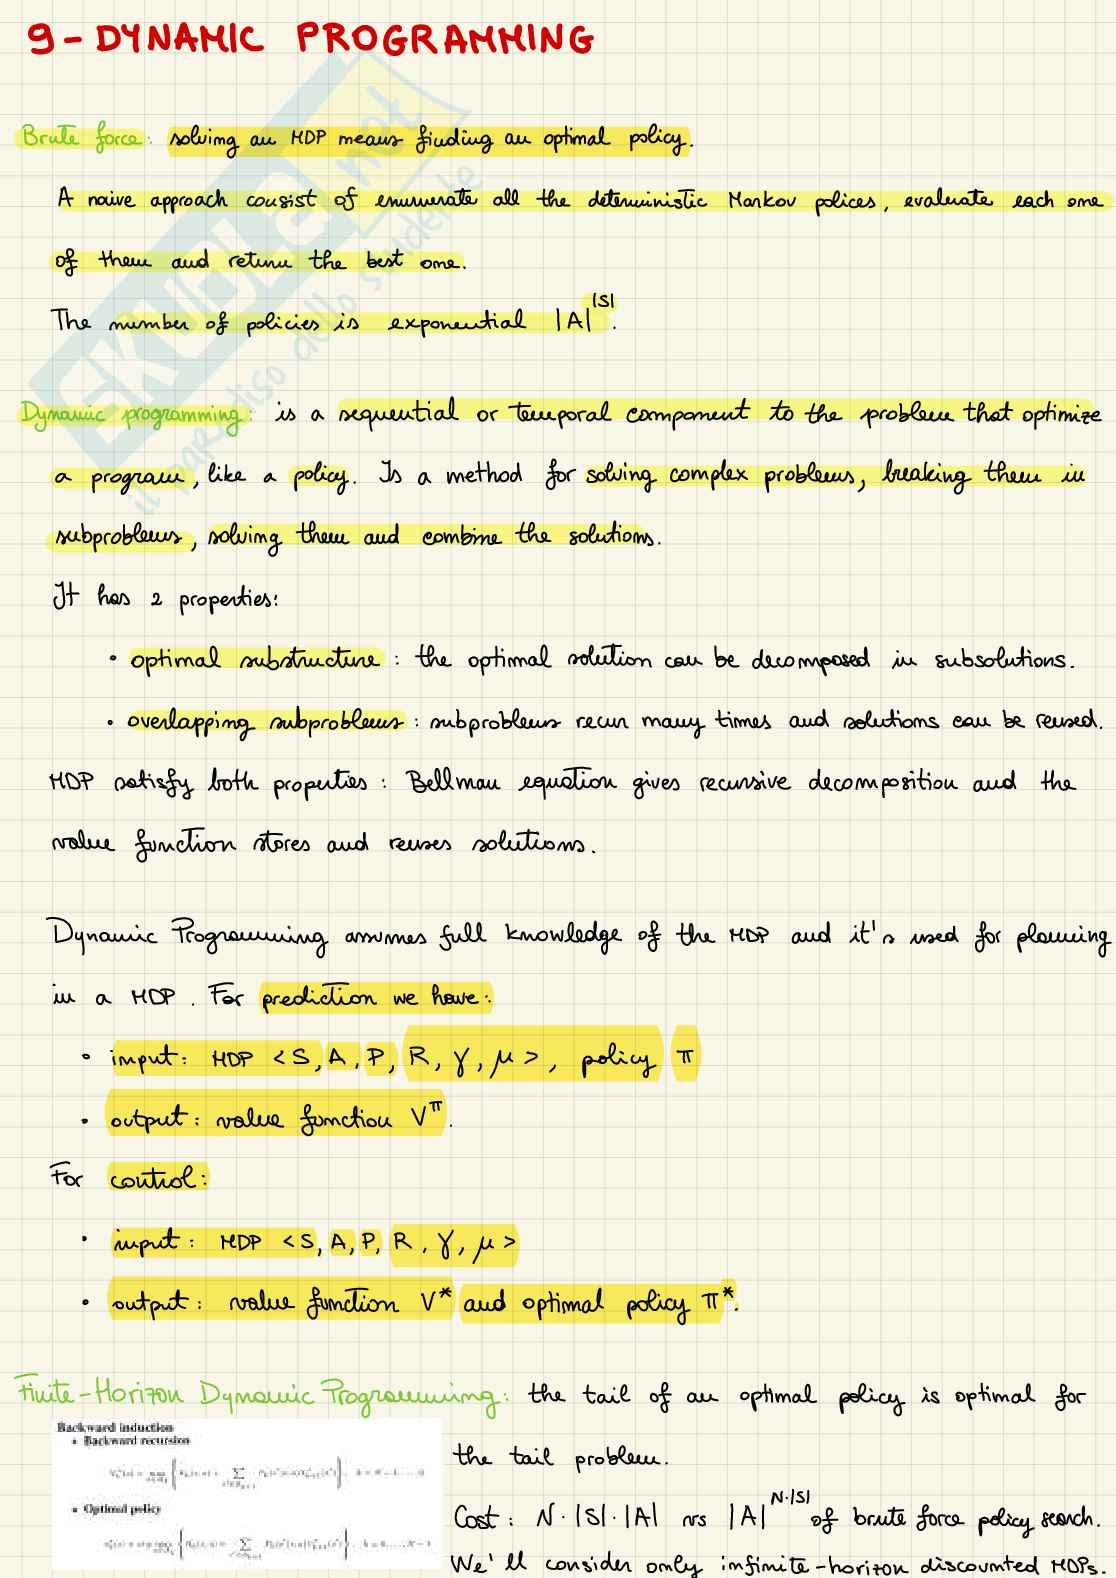 9 - DYNAMIC PROGRAMMING
Brute force: solving an MDP means finding an optimal policy.
A naive approach consist of enumerate all the deterministic Markov polices, evaluate each one
of them and return the best one.
The number of policies is exponential |A|^|S|.
Dynamic programming: is a sequential or temporal component to the problem that optimize
a program, like a policy. Is a method for solving complex problems, breaking them in
subproblems, solving them and combine the solutions.
It has 2 properties:
• optimal substructure: the optimal solution can be decomposed in subsolutions.
• overlapping subproblems: subproblems recur many times and solutions can be reused.
MDP satisfy both properties: Bellman equation gives recursive decomposition and the
value function stores and reuses solutions.
Dynamic Programming assumes full knowledge of the MDP and it's used for planning
in a MDP. For prediction we have:
• input: MDP <S, A, P, R, γ, μ>, policy π
• output: value function V^π.
For control:
• input: MDP <S, A, P, R, γ, μ>
• output: value function V* and optimal policy π*.
Finite-Horizon Dynamic Programming: the tail of an optimal policy is optimal for
the tail problem.
Backward induction
• Backward recursion
• Optimal policy
Cost: N·|S|·|A| vs |A|^N·|S| of brute force policy search.
We'll consider only infinite-horizon discounted MDPs.
SKUOLA.net
il paradiso dello studente